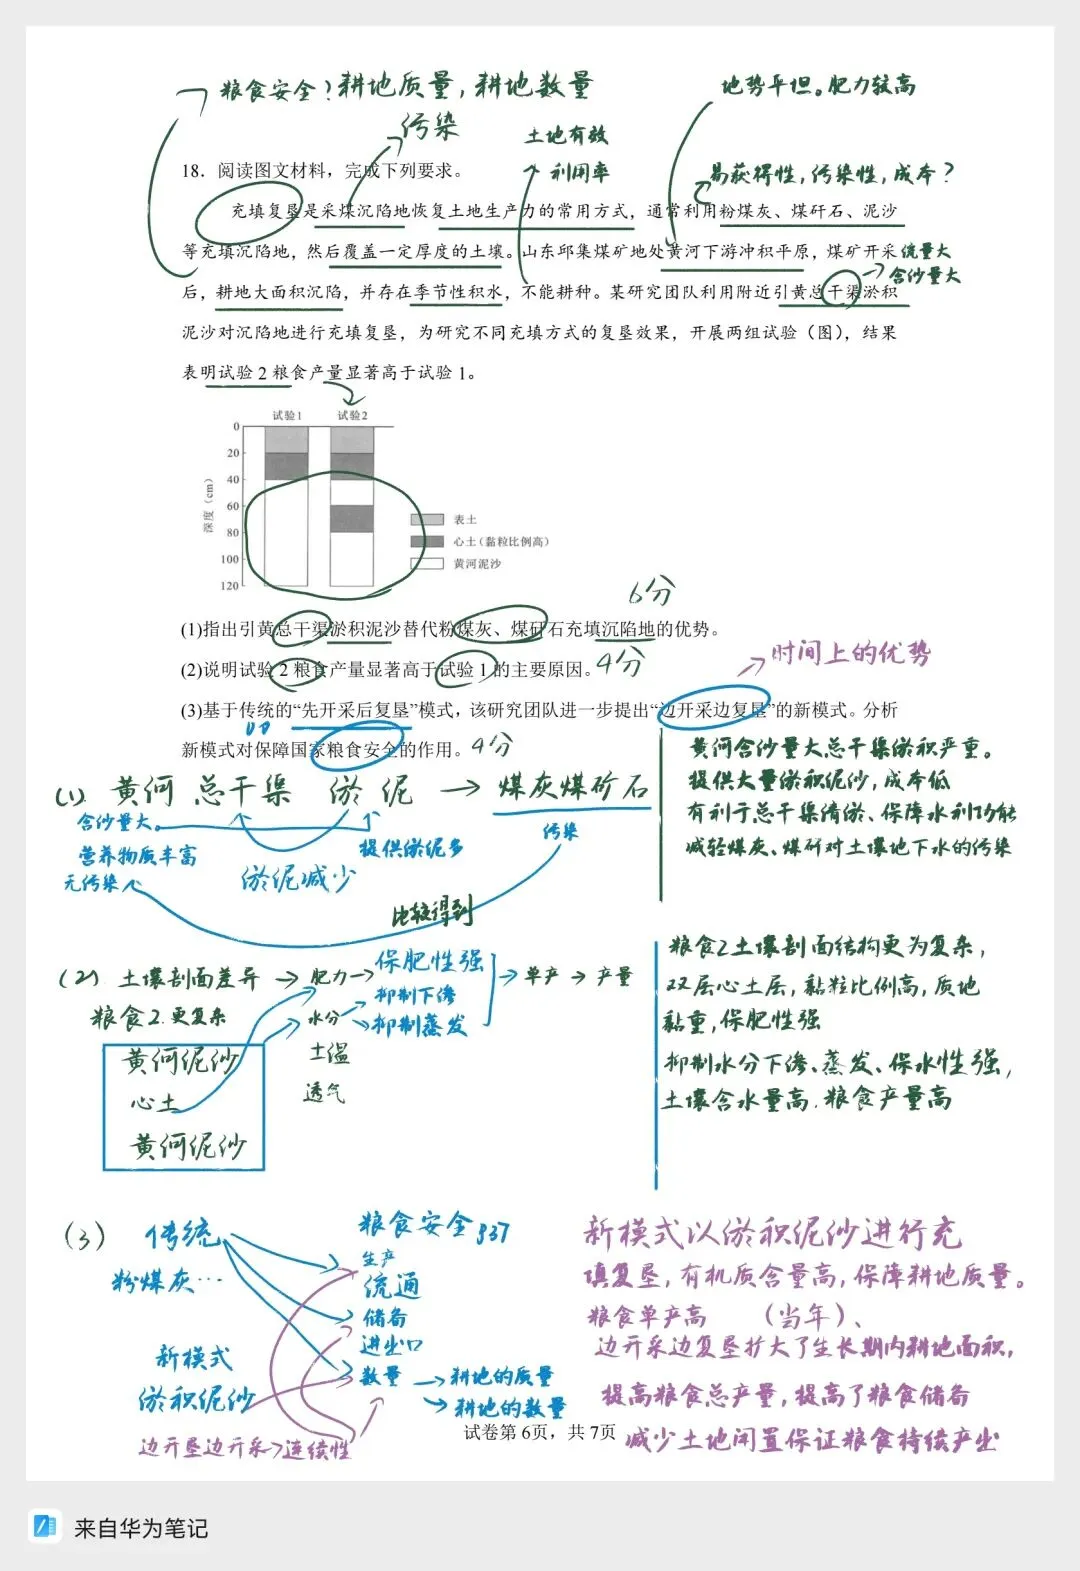 粮食安全？耕地质量，耕地数量
地势平坦。肥力较高
污染
土地有效
利用率
易获得性，污染性，成本？
18．阅读图文材料，完成下列要求。
充填复垦是采煤沉陷地恢复土地生产力的常用方式，通常利用粉煤灰、煤矸石、泥沙
等充填沉陷地，然后覆盖一定厚度的土壤。山东邱集煤矿地处黄河下游冲积平原，煤矿开采
流量大
含沙量大
后，耕地大面积沉陷，并存在季节性积水，不能耕种。某研究团队利用附近引黄总干渠淤积
泥沙对沉陷地进行充填复垦，为研究不同充填方式的复垦效果，开展两组试验（图），结果
表明试验 2 粮食产量显著高于试验 1。
试验1 试验2
0
20
40
60
80
100
120
深度（cm）
表土
心土（黏粒比例高）
黄河泥沙
6分
(1)指出引黄总干渠淤积泥沙替代粉煤灰、煤矸石充填沉陷地的优势。
(2)说明试验 2 粮食产量显著高于试验 1 的主要原因。4分
时间上的优势
(3)基于传统的“先开采后复垦”模式，该研究团队进一步提出“边开采边复垦”的新模式。分析
新模式对保障国家粮食安全的作用。4分
(1) 黄河 总干渠 淤泥 → 煤灰煤矿石
含沙量大。
营养物质丰富
无污染
淤泥减少
提供淤泥多
污染
比较得到
黄河含沙量大总干渠淤积严重。
提供大量淤积泥沙，成本低
有利于总干渠清淤、保障水利功能
减轻煤灰、煤矸对土壤地下水的污染
(2) 土壤剖面差异 → 肥力 → 保肥性强 → 单产 → 产量
粮食2.更复杂
水分
抑制下渗
抑制蒸发
土温
透气
黄河泥沙
心土
黄河泥沙
粮食2土壤剖面结构更为复杂，
双层心土层，黏粒比例高，质地
黏重，保肥性强
抑制水分下渗、蒸发、保水性强，
土壤含水量高．粮食产量高
(3) 传统
粉煤灰…
新模式
淤积泥沙
边开垦边开采→连续性
粮食安全 P37
生产
流通
储备
进出口
数量 → 耕地的质量
→ 耕地的数量
新模式以淤积泥沙进行充
填复垦，有机质含量高，保障耕地质量。
粮食单产高 （当年）、
边开采边复垦扩大了生长期内耕地面积，
提高粮食总产量，提高了粮食储备
减少土地闲置保证粮食持续产出
试卷第 6页，共 7页
来自华为笔记